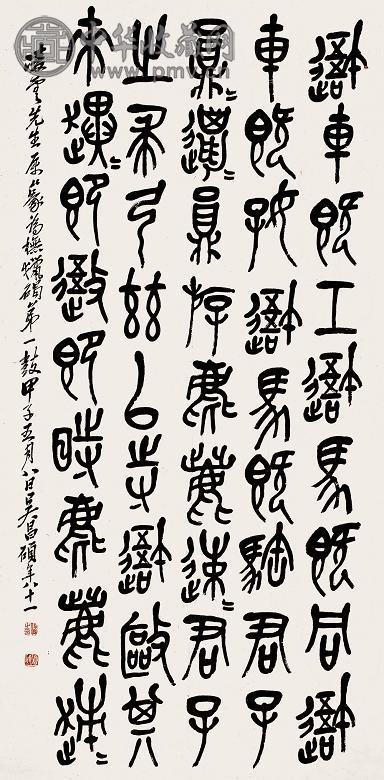 中华收藏网
www.pmv.cn
吾車既工吾馬既同吾
車既好吾馬既䮽君子
員邋=員斿麀鹿速=君子
之求弓兹以寺吾敺其
來趩=即禦即時麀鹿趚
雲先生屬篆為橅獵碣第一鼓甲子五月八日吳昌碩年八十一